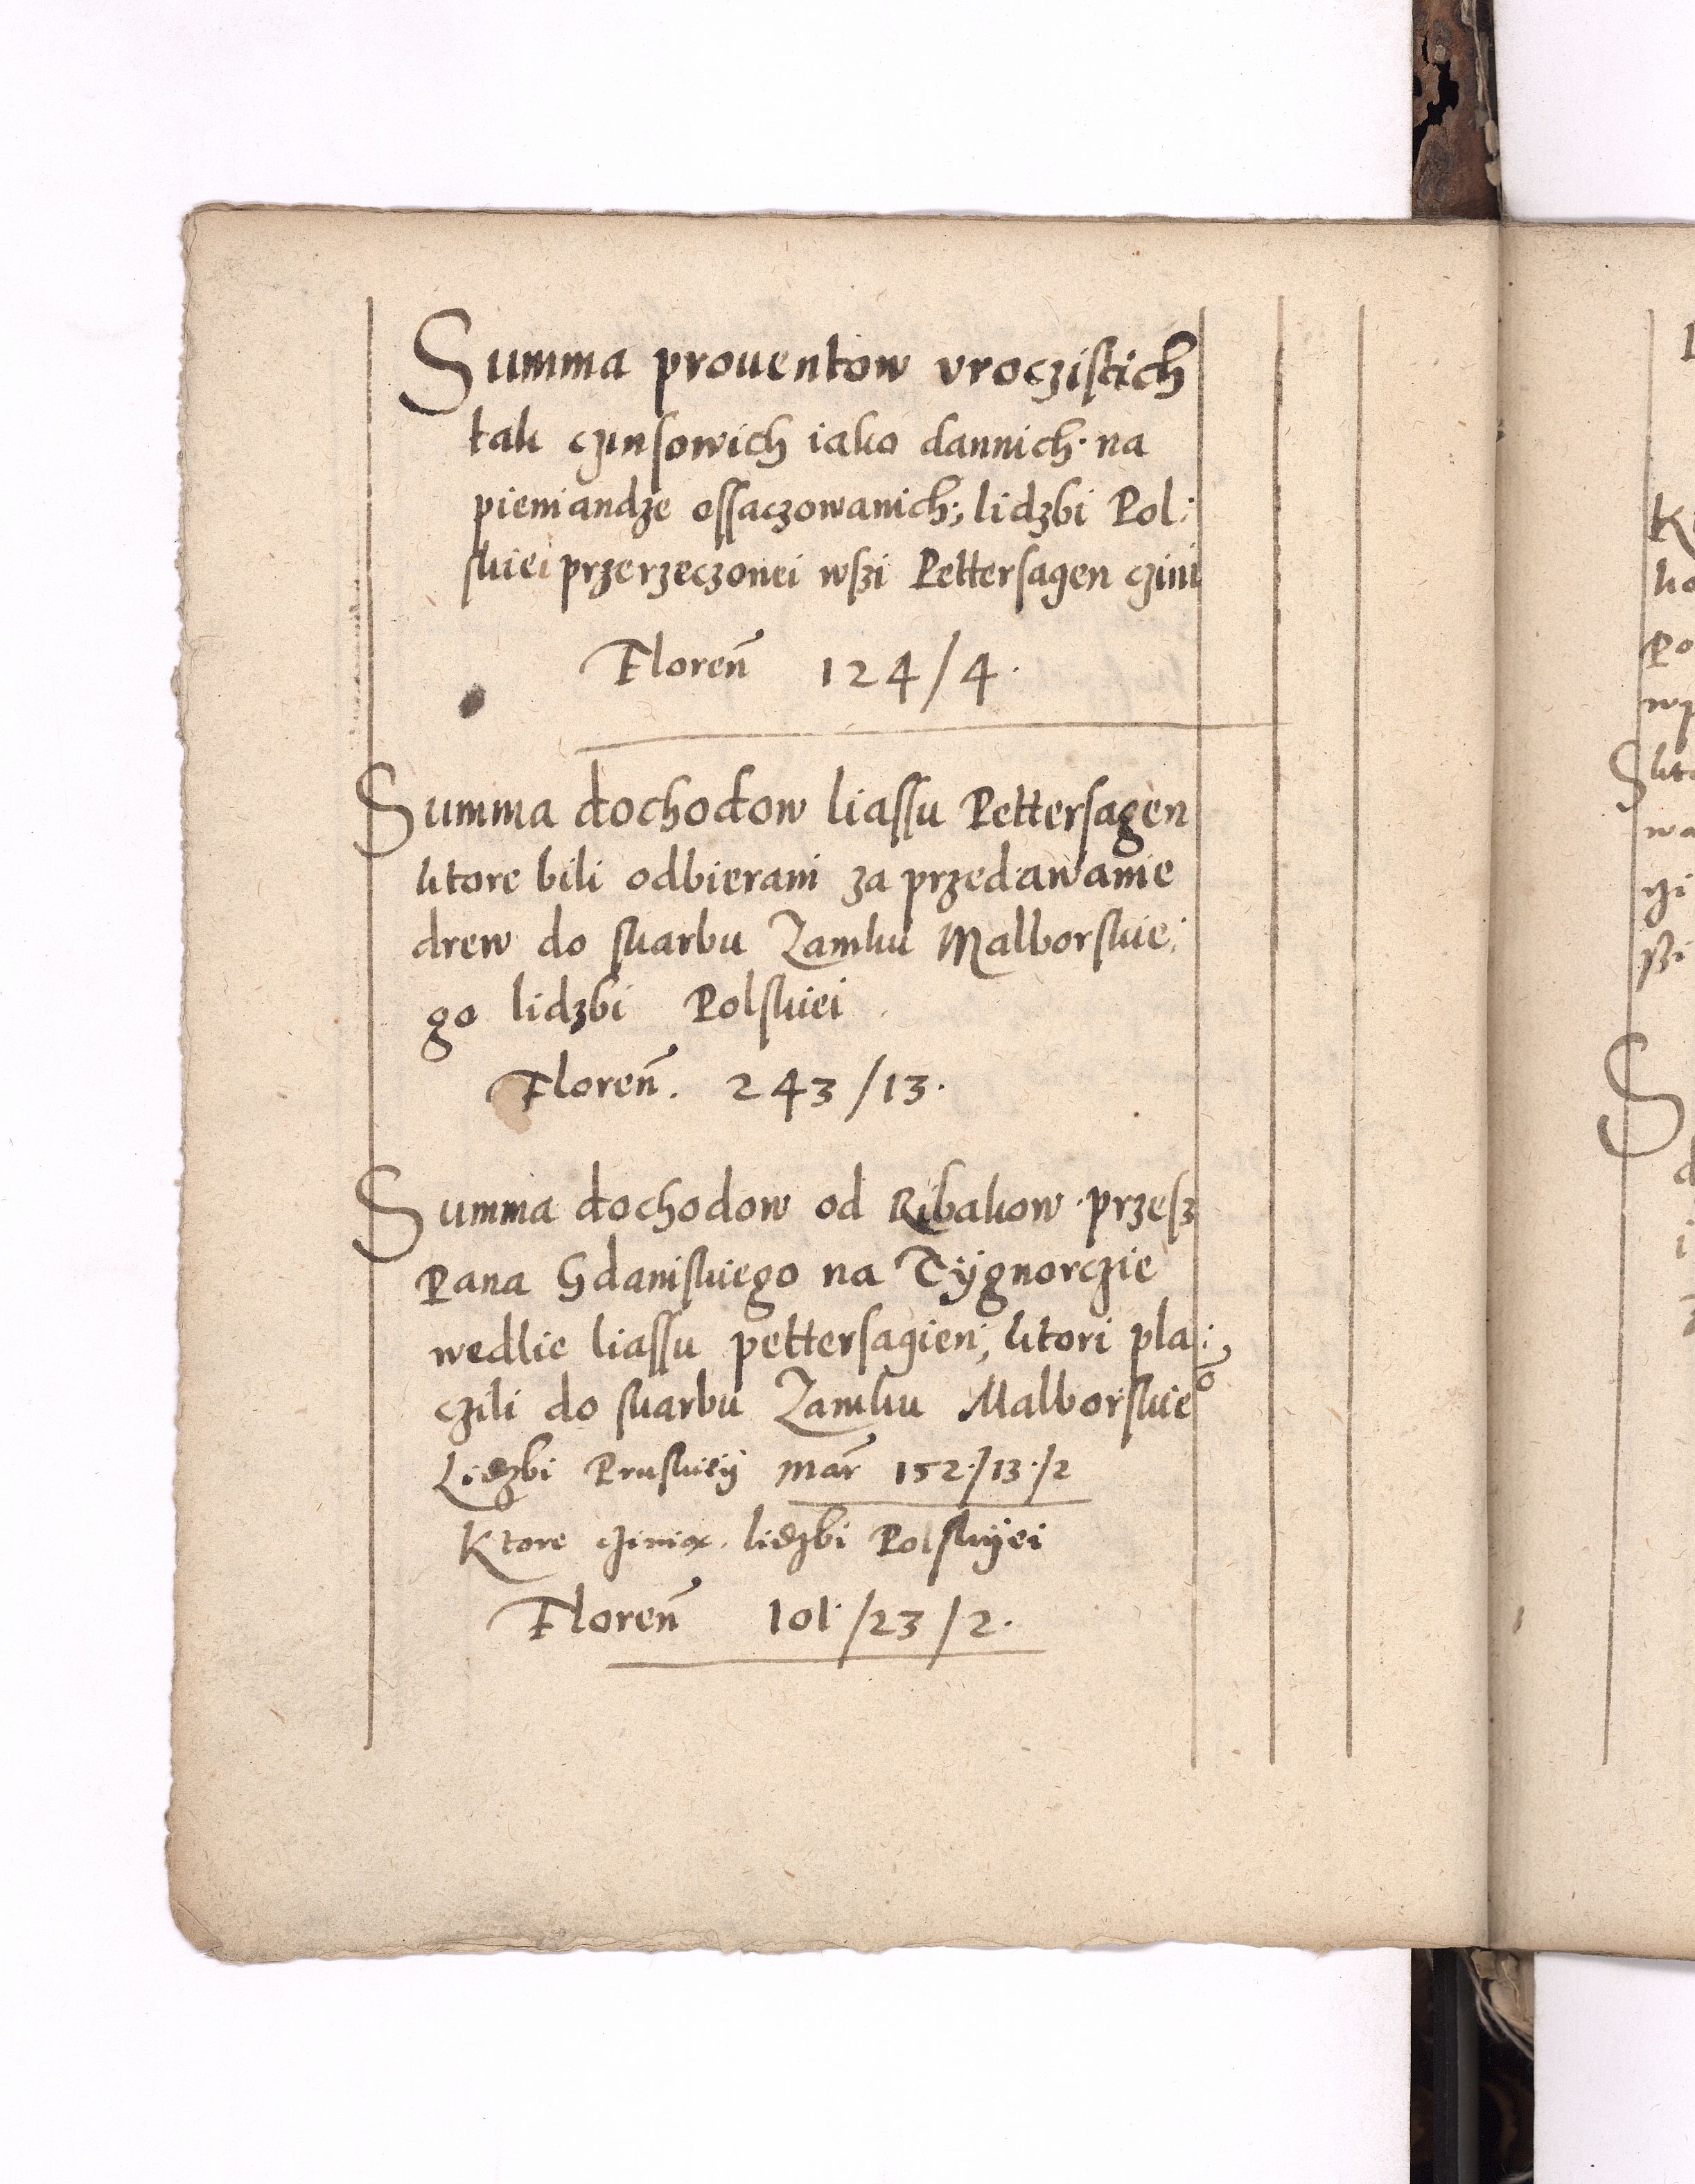 Summa prouentow vroczistich
tak czinsowich iako dannich na
pieniandze ossaczowanich; lidzbi Pol:
skiei przerzeczonei wszi Pettersagen czini
Floren̄ 124/4.
Summa dochodow liassu Pettersagen
ktore bili odbierani za przedawanie
drew do skarbu Zamku Malborskie:
go lidzbi Polskiei
Floren̄. 243/13.
Summa dochodow od Ribakow przesz
Pana Gdaniskiego na Tÿgnorczie
wedlie liassu pettersagien; ktori pla:
czili do skarbu Zamku Malborskie͞o
Lidzbi Pruskieÿ mar̄ 152./13./2
Ktore czinią lidzbi Polskÿei
Floren̄ 101/23/2.
K
ko
Po
wp
Skt
wa
czi
szi
S
d
i